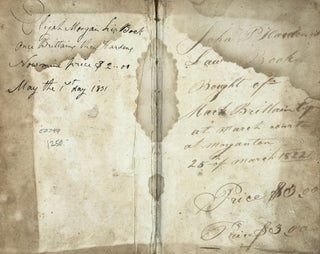 Elijah Morgan his Book
Once Brittains then Hardens
Now mine price $2.00
May the 1st day 1831
1250
John P Harden
Law Book
Bought of
Mark Brittain
at march court
at morganton
25th of march 1822
Price $3.00
Price $3.00